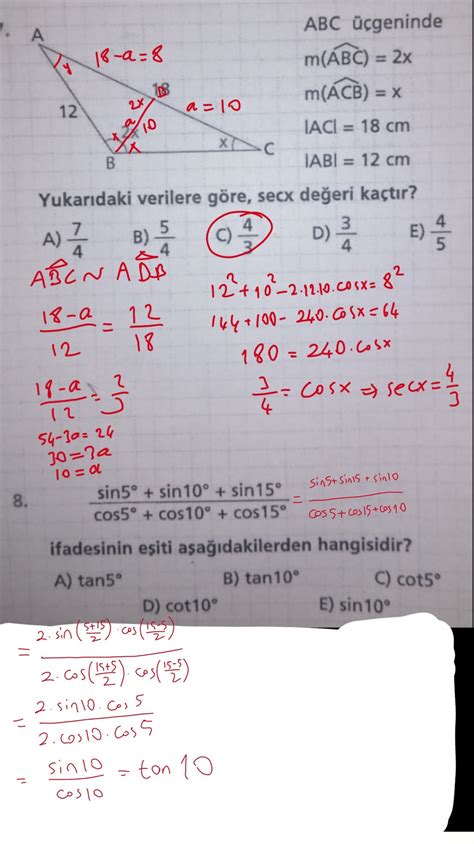 7.
A
18-a=8
y
18
D
2x
a=10
12
a
10
2x
x
x
x
B
C
ABC üçgeninde
m(ABC) = 2x
m(ACB) = x
|AC| = 18 cm
|AB| = 12 cm
Yukarıdaki verilere göre, secx değeri kaçtır?
A) 7/4 B) 5/4 C) 4/3 D) 3/4 E) 4/5
ABC ~ ADB
18-a/12 = 12/18
18-a/12 = 2/3
54-3a=24
30=3a
10=a
12²+10²-2.12.10.cosx=8²
144+100-240.cosx=64
180=240.cosx
3/4=cosx⇒secx=4/3
8. sin5° + sin10° + sin15° / cos5° + cos10° + cos15° = sin5+sin15+sin10 / cos5+cos15+cos10
ifadesinin eşiti aşağıdakilerden hangisidir?
A) tan5° B) tan10° C) cot5°
D) cot10° E) sin10°
= 2.sin(5+15/2).cos(15-5/2) / 2.cos(15+5/2).cos(15-5/2)
= 2.sin10.cos5 / 2.cos10.cos5
= sin10/cos10 = tan10